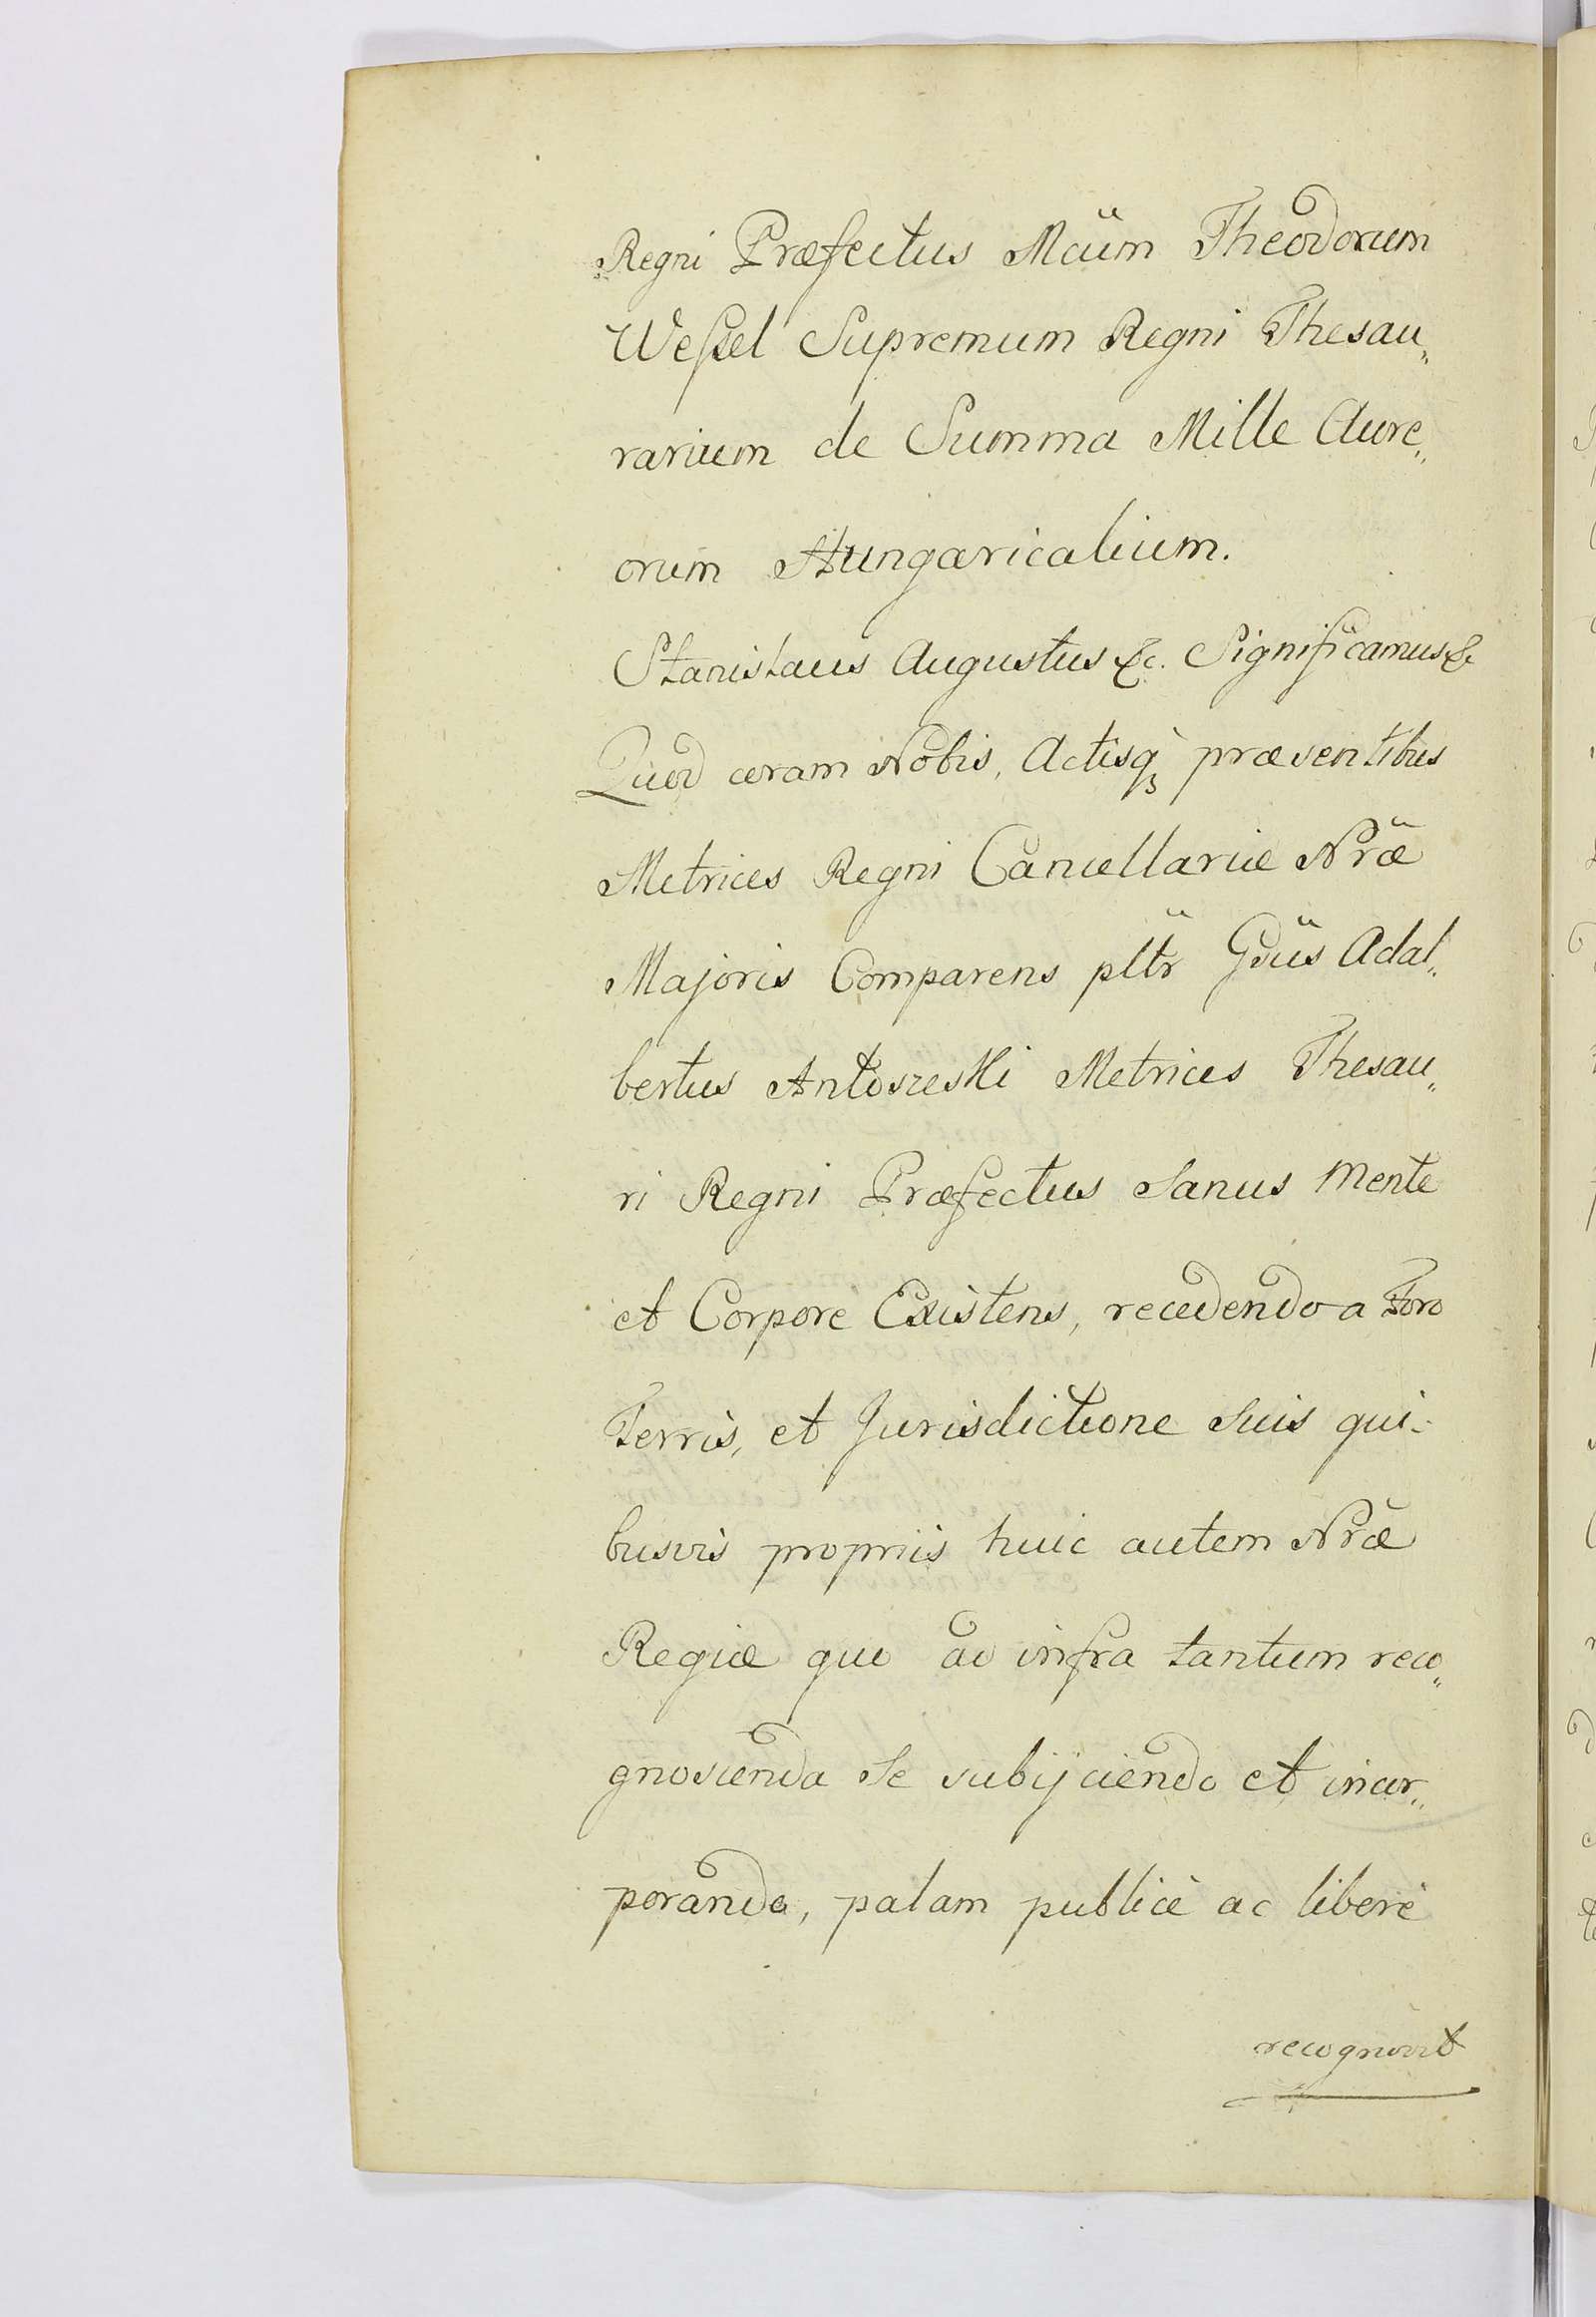 Regni Præfectus Mcüm Theodorum
Weſsel Supremum Regni Thesau„
rarium de Summa Mille Aure„
orum Hungaricalium.
Stanislaus Augustus &c. Significamus &
Quod coram Nobis, Actisq̀ præsentibus
Metrices Regni Cancellariæ Nr̃æ
Majoris Comparens pltr̃ Gsüs Adal„
bertus Antoszeski Metrices Thesau„
ri Regni Præfectus Sanus Mente
et Corpore Existens, recedendo a Foro
Terris, et Jurisdictione Suis qui-
busvis propriis huic autem Nr̃æ
Regiæ quo ad infra tantum reco„
gnoscenda Se subijciendo et incor„
porando, palam publicè ac liberè
recognovit